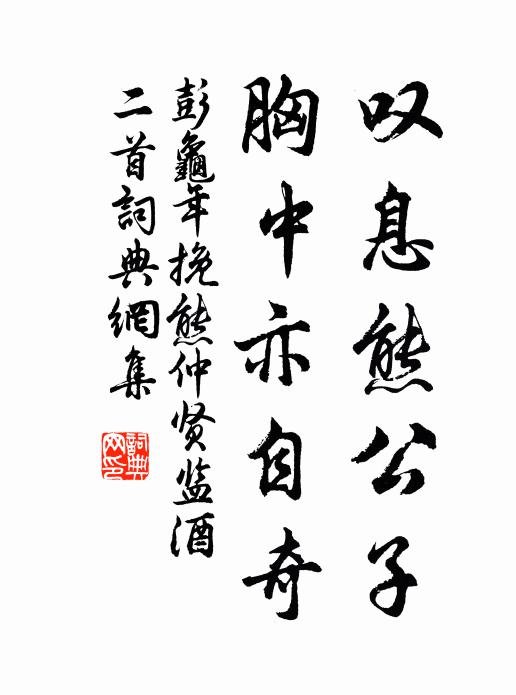 叹息熊公子
胸中亦自奇
彭龜年挽熊仲贤监酒
二首詞典網集
詞典
网印